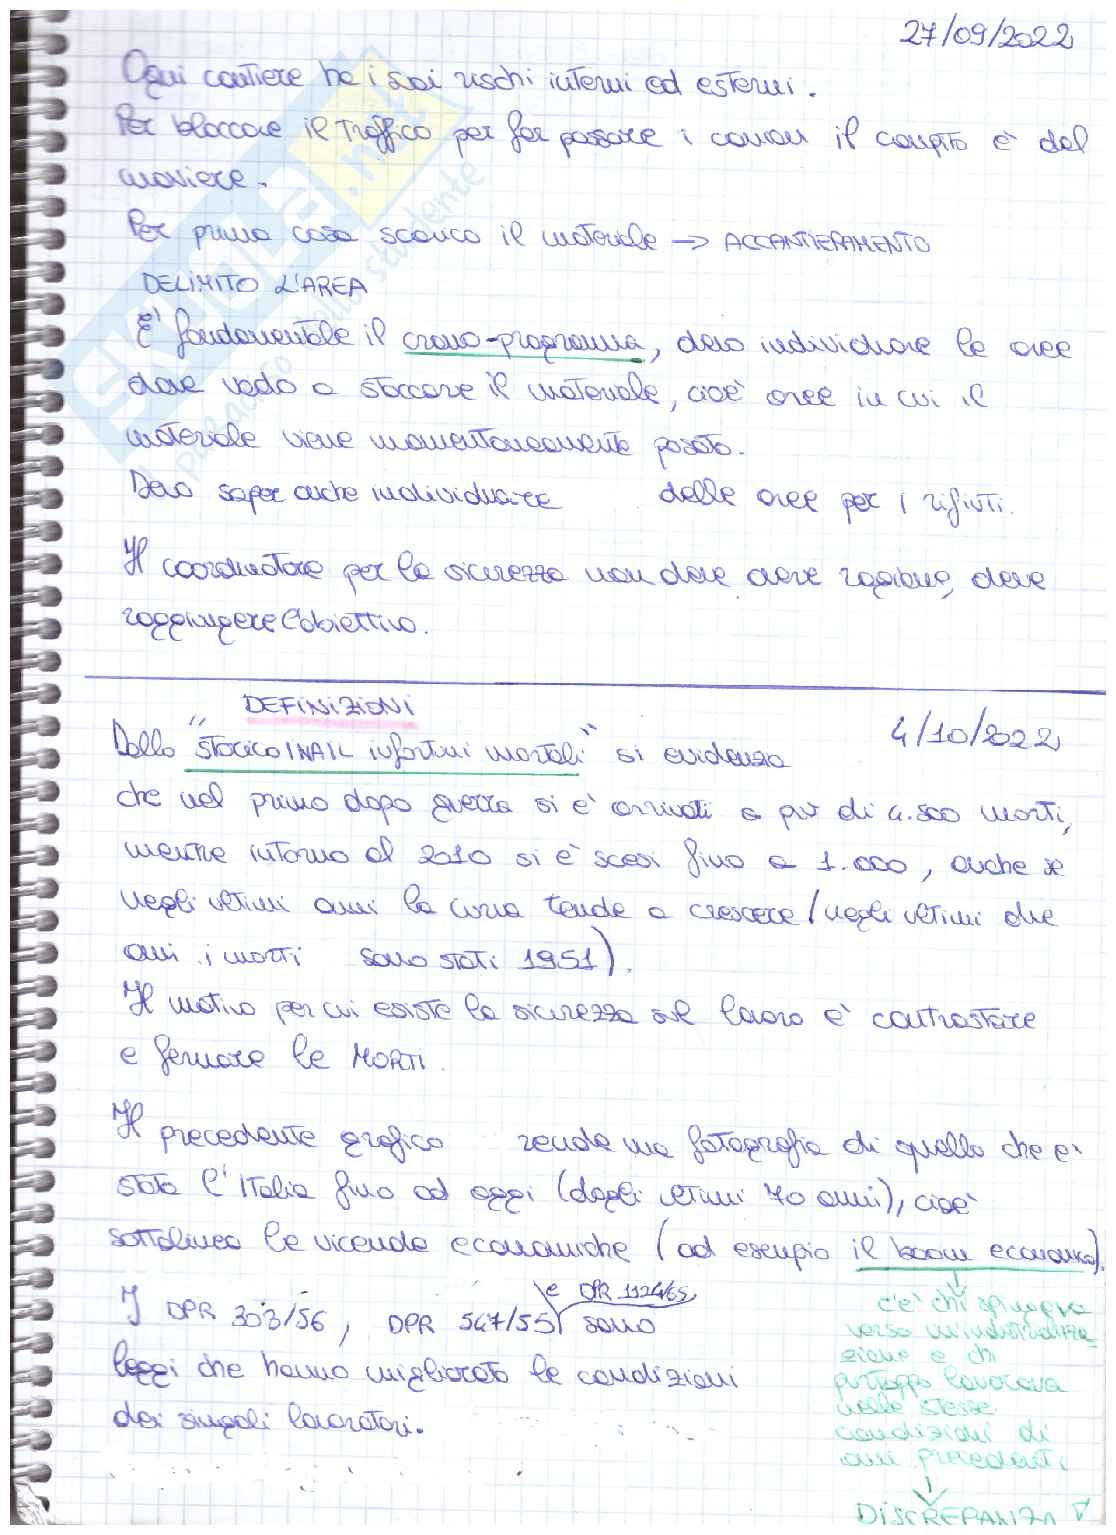 27/09/2022
Ogni cantiere ha i suoi rischi interni ed esterni.
Per bloccare il traffico per far passare i camion il compito è del
moviere.
Per prima cosa scarico il materiale → ACCANTIERAMENTO
DELIMITO L'AREA
E' fondamentale il crono-programma, devo individuare le aree
dove vado a stoccare il materiale, cioè aree in cui il
materiale viene momentaneamente posato.
Devo saper anche individuare delle aree per i rifiuti.
Il coordinatore per la sicurezza non deve avere ragione, deve
raggiungere l'obiettivo.
DEFINIZIONI
4/10/2022
Dallo "storico INAIL infortuni mortali" si evidenzia
che nel primo dopo guerra si è arrivati a più di 4.500 morti,
mentre intorno al 2010 si è scesi fino a 1.000, anche se
negli ultimi anni la curva tende a crescere (negli ultimi due
anni i morti sono stati 1951).
Il motivo per cui esiste la sicurezza sul lavoro è contrastare
e fermare le MORTI.
Il precedente grafico rende una fotografia di quello che è
stata l'Italia fino ad oggi (dagli ultimi 70 anni), cioè
sottolinea le vicende economiche (ad esempio il boom economico).
I DPR 303/56, DPR 547/55 e DPR 1124/65, sono
leggi che hanno migliorato le condizioni
dei singoli lavoratori.
c'è chi spingeva
verso un'industrializza
zione e chi
purtroppo lavorava
nelle stesse
condizioni di
anni precedenti
DISCREPANZA
SKUOLA.net
paradiso dello studente